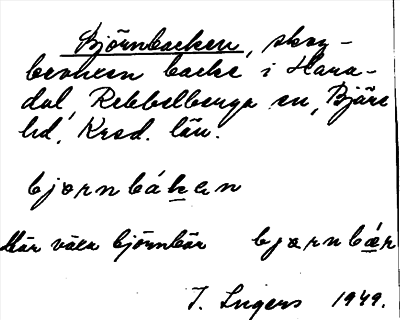 Björnbacken, skog-
bevuxen backe i Hara-
dal, Rebbelberga sn, Bjäre
hd, Krsd. län.
bjørnbáken
Här växa björnbär bjørnbǽr
I. Ingers 1949.